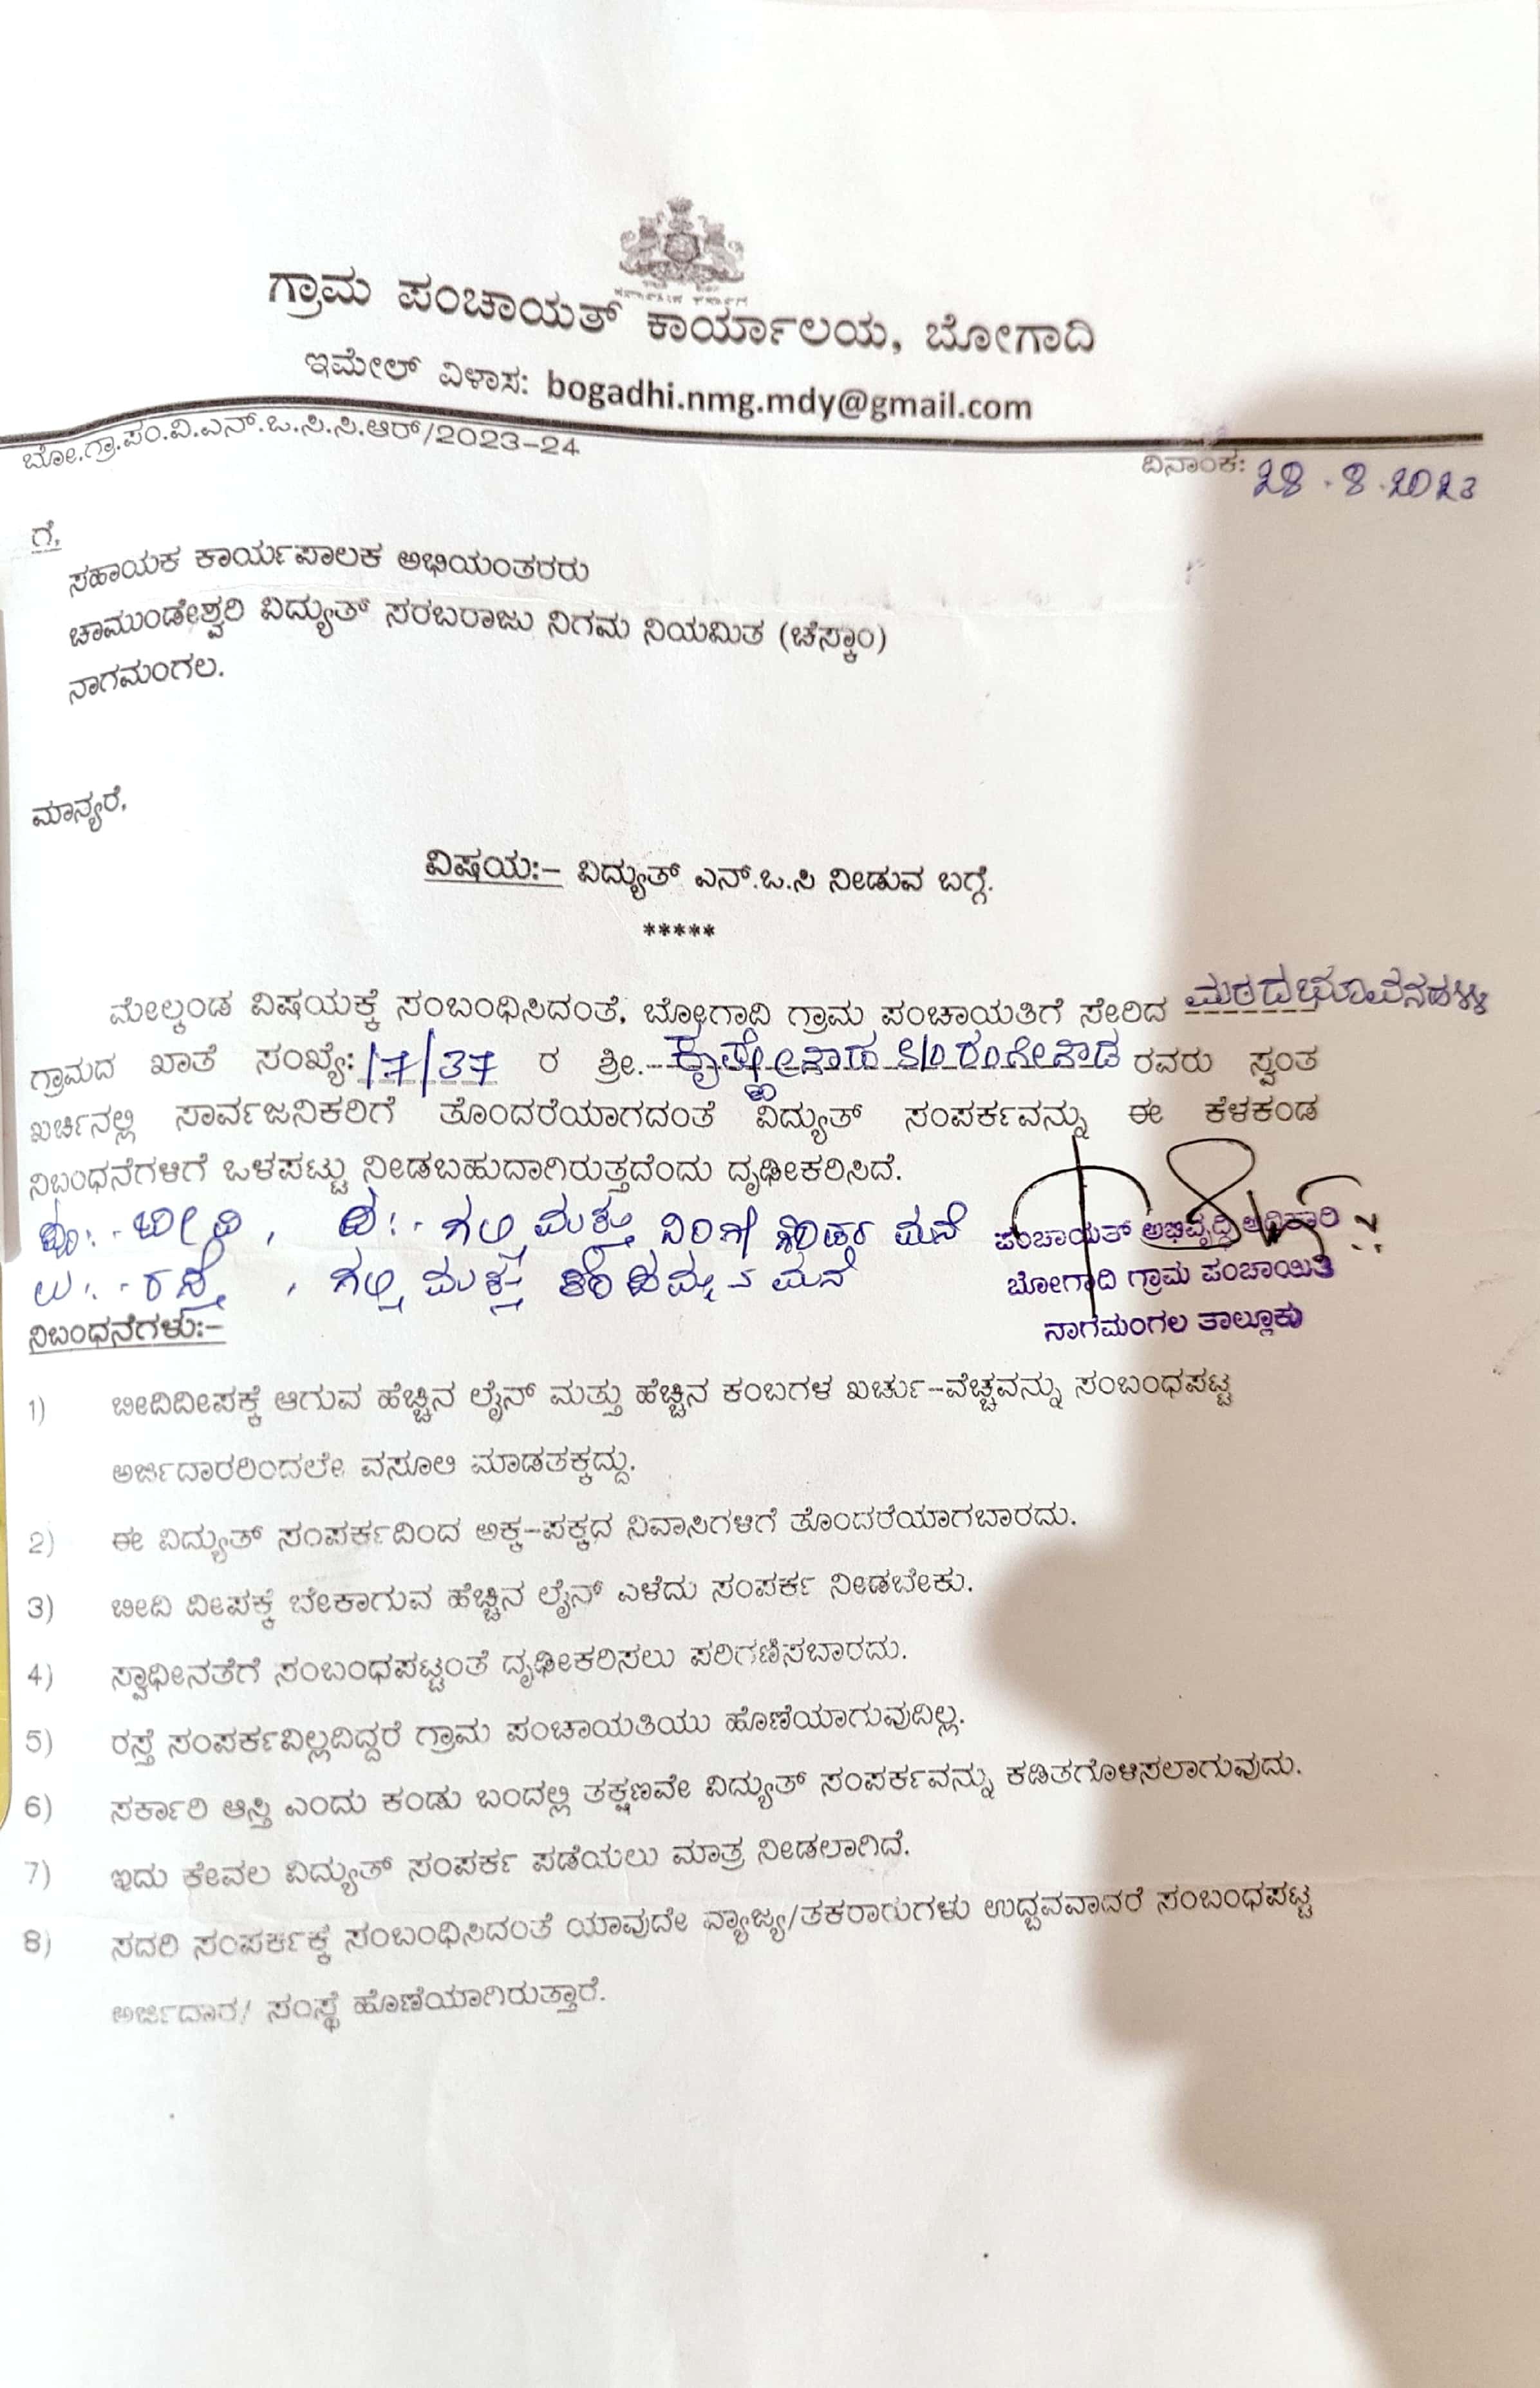 ಗ್ರಾಮ ಪಂಚಾಯತ್ ಕಾರ್ಯಾಲಯ, ಬೋಗಾದಿ
ಇಮೇಲ್ ವಿಳಾಸ: bogadhi.nmg.mdy@gmail.com
ಬೋ.ಗ್ರಾ.ಪಂ.ವಿ.ಎನ್.ಒ.ಸಿ.ಸಿ.ಆರ್/2023-24
ದಿನಾಂಕ: 28.8.2023
ಗೆ,
ಸಹಾಯಕ ಕಾರ್ಯಪಾಲಕ ಅಭಿಯಂತರರು
ಚಾಮುಂಡೇಶ್ವರಿ ವಿದ್ಯುತ್ ಸರಬರಾಜು ನಿಗಮ ನಿಯಮಿತ (ಚೆಸ್ಕಾಂ)
ನಾಗಮಂಗಲ.
ಮಾನ್ಯರೆ,
ವಿಷಯ:- ವಿದ್ಯುತ್ ಎನ್.ಒ.ಸಿ ನೀಡುವ ಬಗ್ಗೆ.
*****
ಮೇಲ್ಕಂಡ ವಿಷಯಕ್ಕೆ ಸಂಬಂಧಿಸಿದಂತೆ, ಬೋಗಾದಿ ಗ್ರಾಮ ಪಂಚಾಯತಿಗೆ ಸೇರಿದ
ಗ್ರಾಮದ ಖಾತೆ ಸಂಖ್ಯೆ: 17/37 ರ ಶ್ರೀ. S/o ರಂಗೇಗೌಡ ರವರು ಸ್ವಂತ
ಖರ್ಚಿನಲ್ಲಿ ಸಾರ್ವಜನಿಕರಿಗೆ ತೊಂದರೆಯಾಗದಂತೆ ವಿದ್ಯುತ್ ಸಂಪರ್ಕವನ್ನು ಈ ಕೆಳಕಂಡ
ನಿಬಂಧನೆಗಳಿಗೆ ಒಳಪಟ್ಟು ನೀಡಬಹುದಾಗಿರುತ್ತದೆಂದು ದೃಢೀಕರಿಸಿದೆ.
ಪೂ:- ಬೀದಿ, ಪ:- ಗಲ್ಲಿ ಮತ್ತು ಮನೆ
ಉ:- ರಸ್ತೆ, ಗಲ್ಲಿ ಮತ್ತು ಮನೆ
ಪಂಚಾಯತ್ ಅಭಿವೃದ್ಧಿ ಅಧಿಕಾರಿ
ಬೋಗಾದಿ ಗ್ರಾಮ ಪಂಚಾಯಿತಿ
ನಾಗಮಂಗಲ ತಾಲ್ಲೂಕು
ನಿಬಂಧನೆಗಳು:-
1) ಬೀದಿದೀಪಕ್ಕೆ ಆಗುವ ಹೆಚ್ಚಿನ ಲೈನ್ ಮತ್ತು ಹೆಚ್ಚಿನ ಕಂಬಗಳ ಖರ್ಚು-ವೆಚ್ಚವನ್ನು ಸಂಬಂಧಪಟ್ಟ
ಅರ್ಜಿದಾರರಿಂದಲೇ ವಸೂಲಿ ಮಾಡತಕ್ಕದ್ದು.
2) ಈ ವಿದ್ಯುತ್ ಸಂಪರ್ಕದಿಂದ ಅಕ್ಕ-ಪಕ್ಕದ ನಿವಾಸಿಗಳಿಗೆ ತೊಂದರೆಯಾಗಬಾರದು.
3) ಬೀದಿ ದೀಪಕ್ಕೆ ಬೇಕಾಗುವ ಹೆಚ್ಚಿನ ಲೈನ್ ಎಳೆದು ಸಂಪರ್ಕ ನೀಡಬೇಕು.
4) ಸ್ವಾಧೀನತೆಗೆ ಸಂಬಂಧಪಟ್ಟಂತೆ ದೃಢೀಕರಿಸಲು ಪರಿಗಣಿಸಬಾರದು.
5) ರಸ್ತೆ ಸಂಪರ್ಕವಿಲ್ಲದಿದ್ದರೆ ಗ್ರಾಮ ಪಂಚಾಯತಿಯು ಹೊಣೆಯಾಗುವುದಿಲ್ಲ.
6) ಸರ್ಕಾರಿ ಆಸ್ತಿ ಎಂದು ಕಂಡು ಬಂದಲ್ಲಿ ತಕ್ಷಣವೇ ವಿದ್ಯುತ್ ಸಂಪರ್ಕವನ್ನು ಕಡಿತಗೊಳಿಸಲಾಗುವುದು.
7) ಇದು ಕೇವಲ ವಿದ್ಯುತ್ ಸಂಪರ್ಕ ಪಡೆಯಲು ಮಾತ್ರ ನೀಡಲಾಗಿದೆ.
8) ಸದರಿ ಸಂಪರ್ಕಕ್ಕೆ ಸಂಬಂಧಿಸಿದಂತೆ ಯಾವುದೇ ವ್ಯಾಜ್ಯ/ತಕರಾರುಗಳು ಉದ್ಭವವಾದರೆ ಸಂಬಂಧಪಟ್ಟ
ಅರ್ಜಿದಾರ/ ಸಂಸ್ಥೆ ಹೊಣೆಯಾಗಿರುತ್ತಾರೆ.